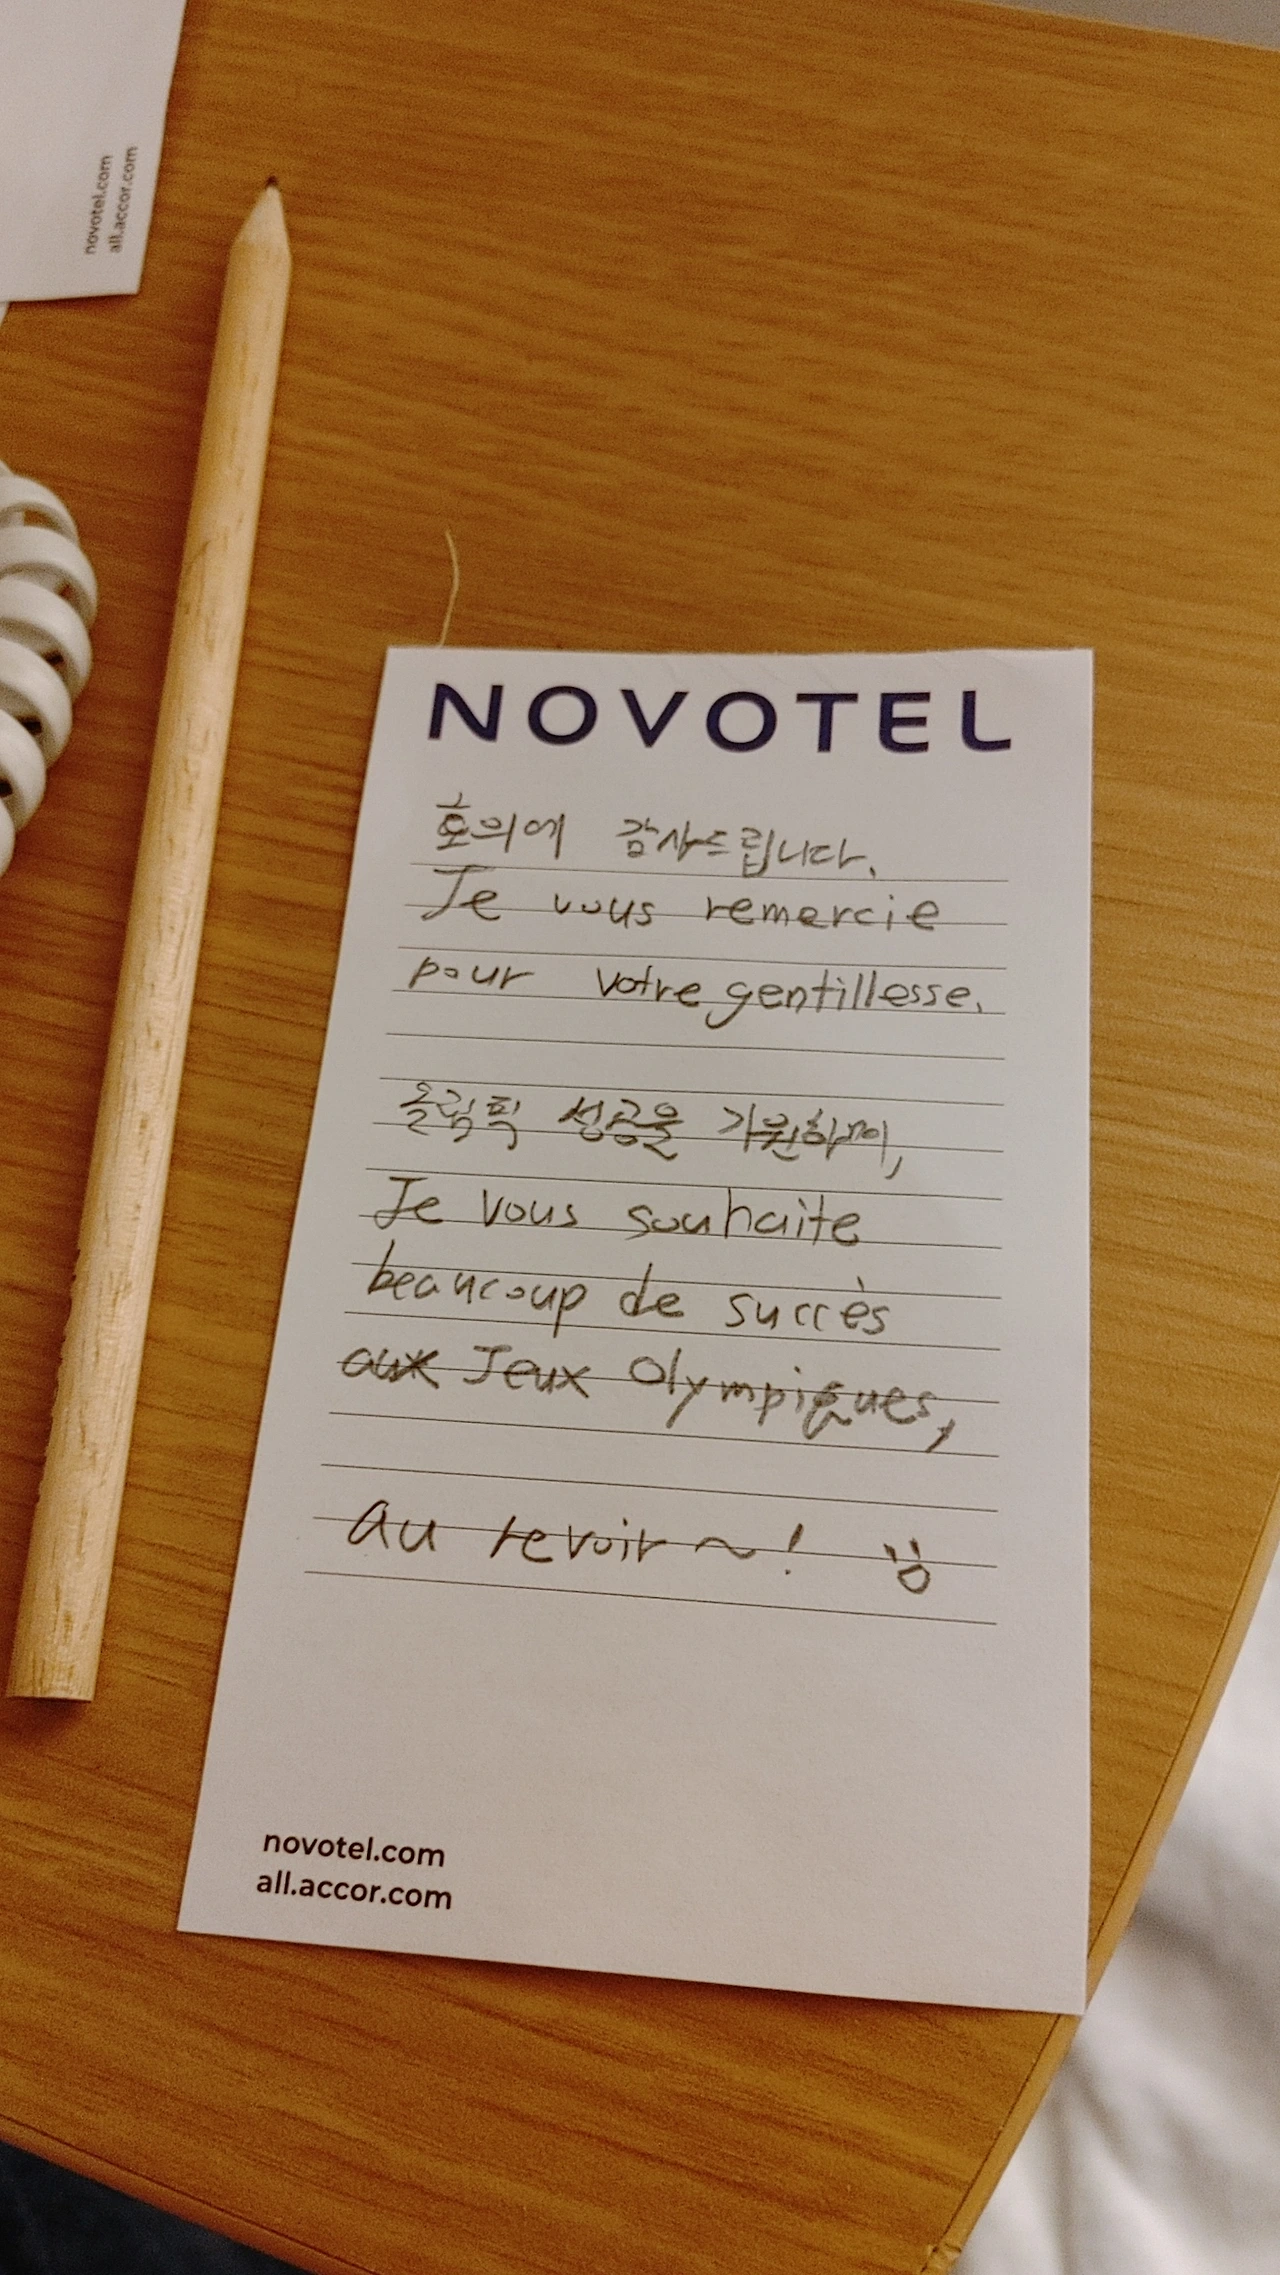 novotel.com
all.accor.com
NOVOTEL
호의에 감사드립니다.
Je vous remercie
pour votre gentillesse.
올림픽 성공을 기원하며,
Je vous souhaite
beaucoup de succès
aux Jeux Olympiques,
au revoir ~!
novotel.com
all.accor.com